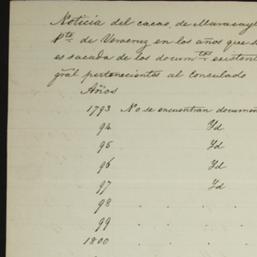 Noticia del cacao, de Maracay
Pto de Veracruz en los años que s
es sacada de los documtos existent
gral pertenecientes al Consulado
Años
1793 No se encuentran documen
94 Yd
95 Yd
96 Yd
97 Yd
98 . . .
99 . . .
1800 . . .